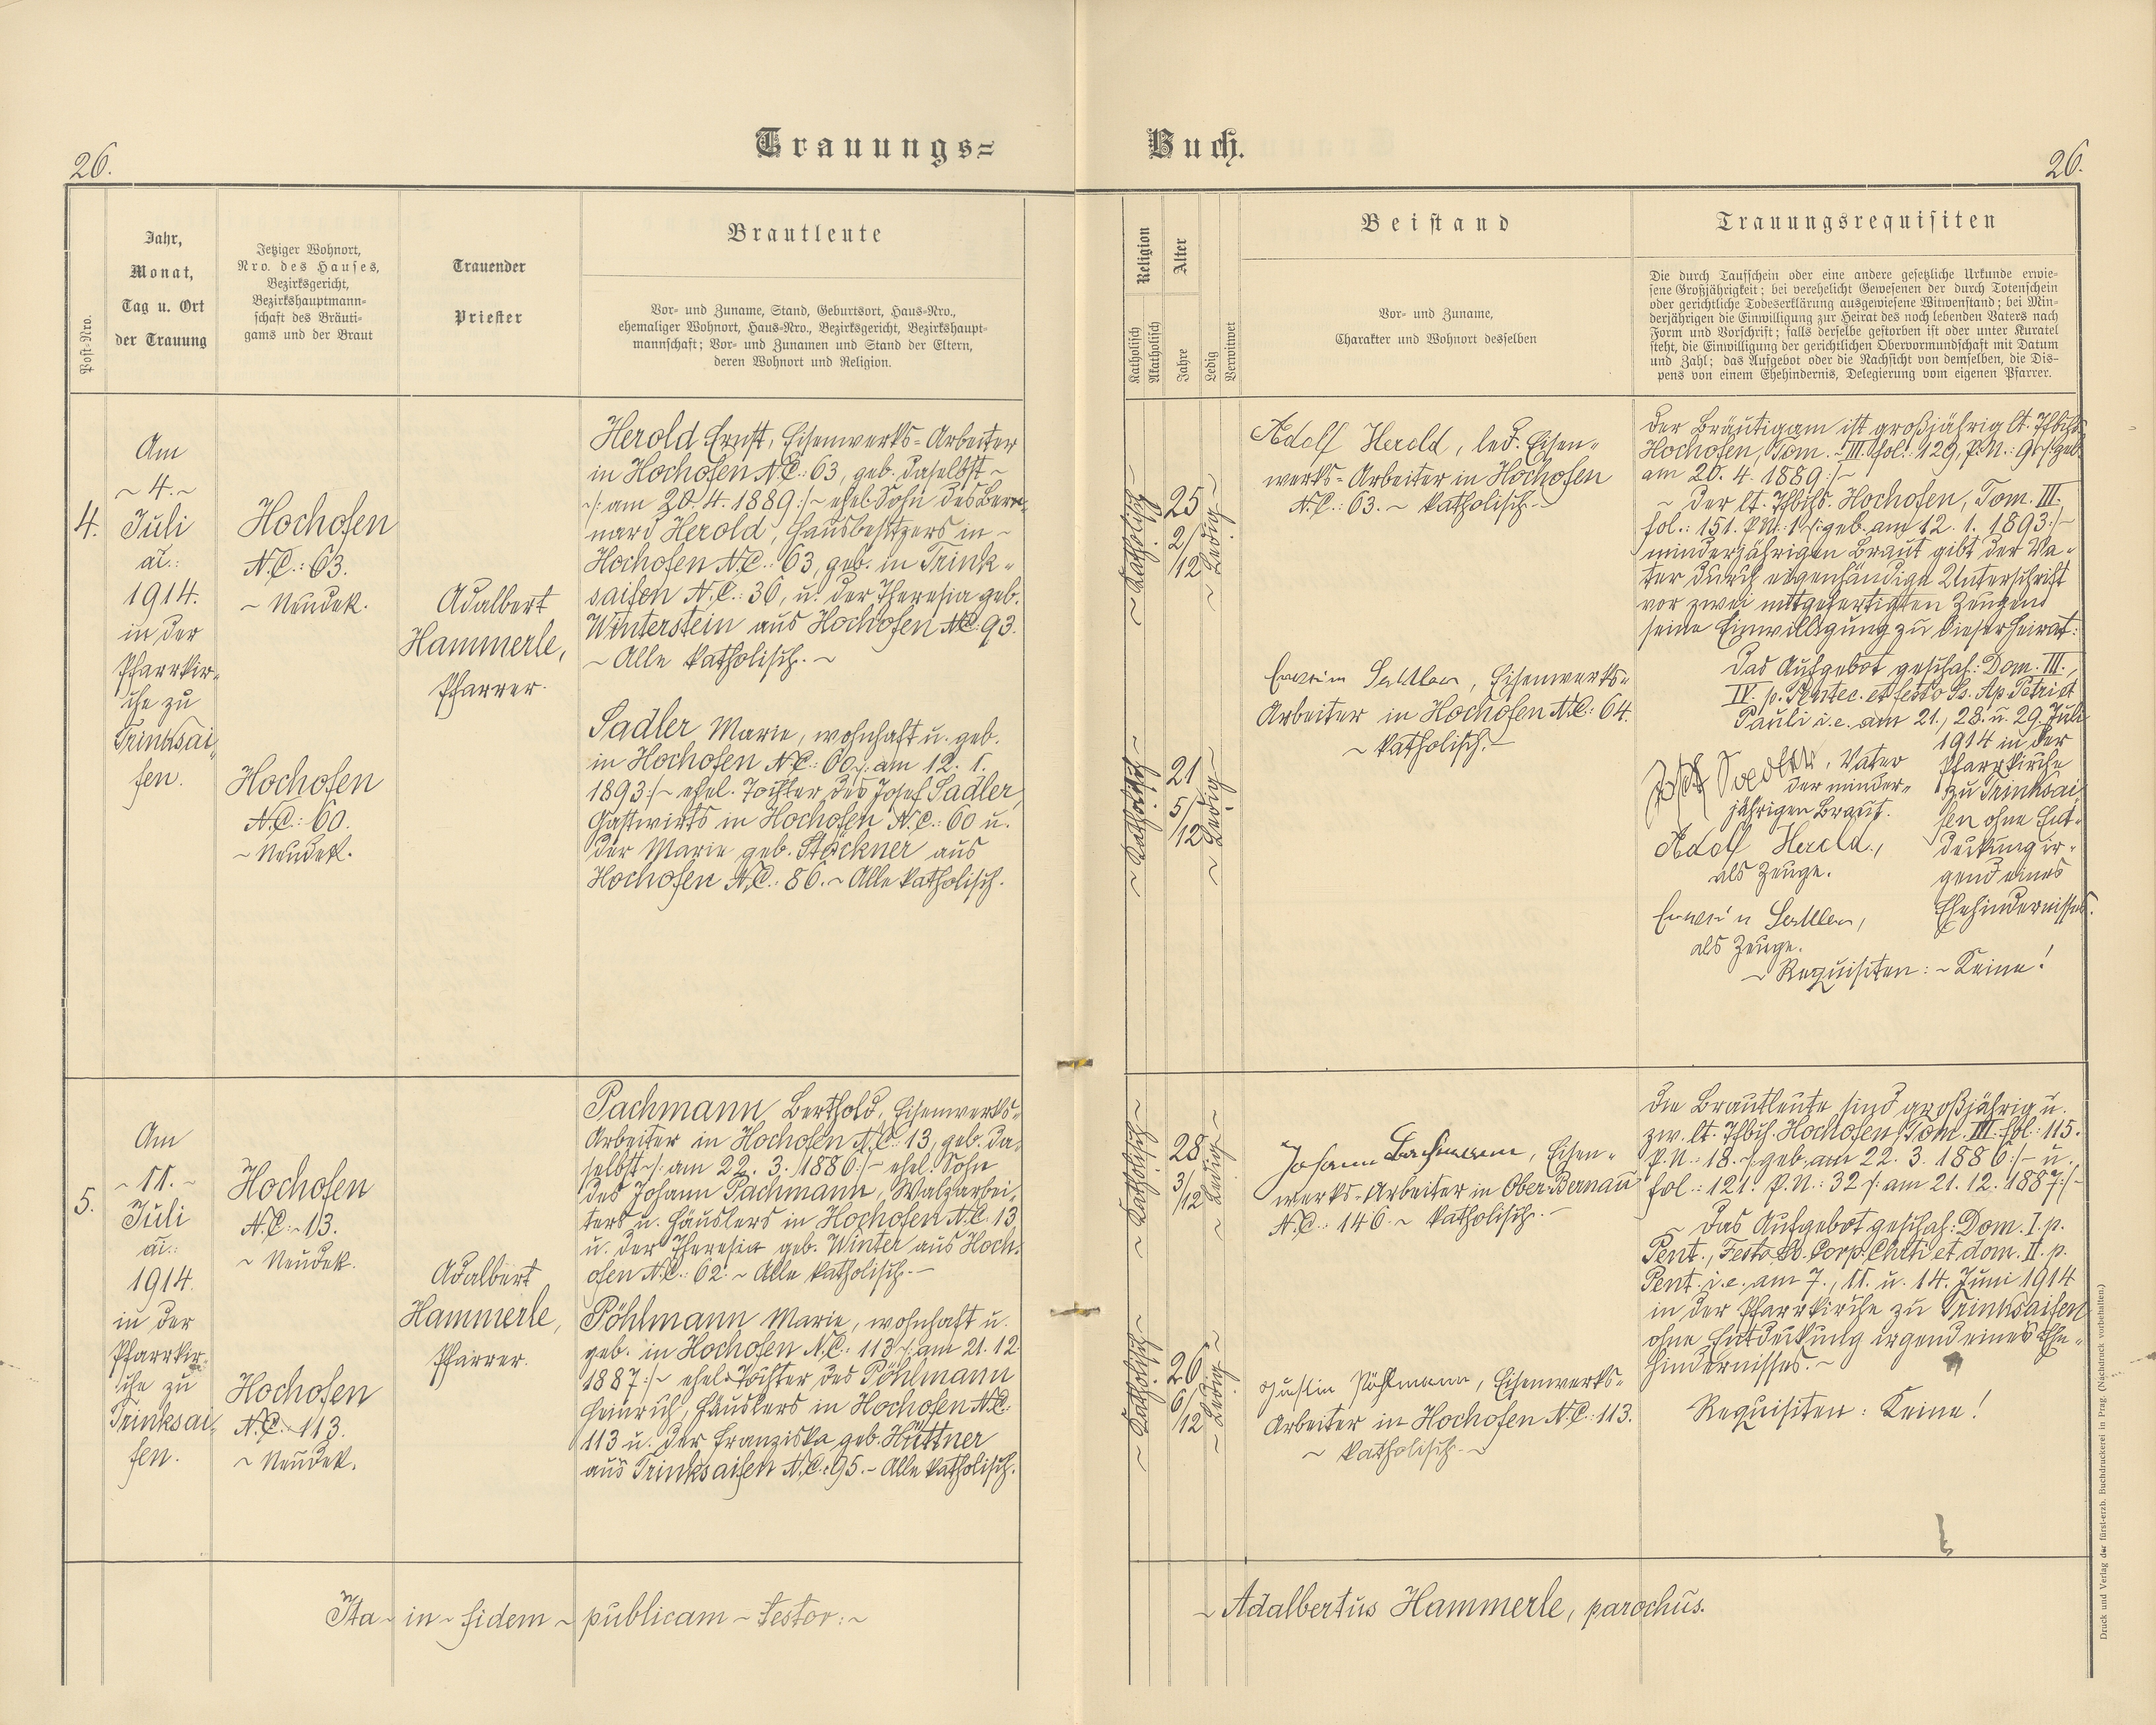 26.
Trauungs=
Buch.
26.
Post-Nro.
Jahr,
Monat,
Tag u. Ort
der Trauung
Jetziger Wohnort,
Nro. des Hauses,
Bezirksgericht,
Bezirkshauptmann=
schaft des Bräuti=
gams und der Braut
Trauender
Priester
Brautleute
Vor- und Zuname, Stand, Geburtsort, Haus=Nro.,
ehemaliger Wohnort, Haus=Nro., Bezirksgericht, Bezirkshaupt=
mannschaft; Vor- und Zunamen und Stand der Eltern,
deren Wohnort und Religion.
Religion
Katholisch
Akatholisch
Alter
Jahre
Ledig
Verwitwet
Beistand
Vor- und Zuname,
Charakter und Wohnort desselben
Trauungsrequisiten
Die durch Taufschein oder eine andere gesetzliche Urkunde erwie=
sene Großjährigkeit; bei verehelicht Gewesenen der durch Totenschein
oder gerichtliche Todeserklärung ausgewiesene Witwenstand; bei Min=
derjährigen die Einwilligung zur Heirat des noch lebenden Vaters nach
Form und Vorschrift; falls derselbe gestorben ist oder unter Kuratel
steht, die Einwilligung der gerichtlichen Obervormundschaft mit Datum
und Zahl; das Aufgebot oder die Nachsicht von demselben, die Dis=
pens von einem Ehehindernis, Delegierung vom eigenen Pfarrer.
4.
Am
~ 4. ~
Juli
ai.:
1914.
in der
Pfarrkir=
che zu
Trinksai=
fen.
Hochofen
N.C.: 63.
~ Neudek.
Hochofen
N.C.: 60.
~ Neudek.
Adalbert
Hammerle,
Pfarrer.
Herold Ernst, Eisenwerks=Arbeiter
in Hochofen N.C.: 63, geb. daselbst ~
~/: am 20. 4. 1889 :/~ ehel. Sohn des Ber=
nard Herold, Hausbesitzers in ~
Hochofen N.C.: 63, geb. in Trink=
saifen N.C.: 36, u. der Theresia geb.
Winterstein aus Hochofen N.C. 93.
~ Alle katholisch. ~
Sadler Marie, wohnhaft u. geb.
in Hochofen N.C.: 60 /: am 12. 1.
1893 :/~ ehel. Tochter des Josef Sadler,
Gastwirts in Hochofen N.C.: 60 u.
der Marie geb. Stöckner aus
Hochofen N.C.: 86. ~ Alle katholisch.
~ Katholisch ~
25
2/12
~ Ledig ~
~ Katholisch ~
21
5/12
~ Ledig ~
Adolf Herold, led. Eisen=
werks=Arbeiter in Hochofen
N.C.: 63. ~ katholisch. ~
Erwin Sadler, Eisenwerks=
Arbeiter in Hochofen N.C.: 64.
~ katholisch. ~
Der Bräutigam ist großjährig lt. Tfbchs.
Hochofen, Tom. III. fol.: 129, P.N.: 9 /: geb.
am 20. 4. 1889 :/~
~ Der lt. Tfbchs. Hochofen, Tom. III.
fol.: 151. P.N.: 1 /: geb. am 12. 1. 1893 :/~
minderjährigen Braut gibt der Va=
ter durch eigenhändige Unterschrift
vor zwei mitgefertigten Zeugen
seine Einwilligung zu dieser Heirat:
Das Aufgebot geschah: Dom. III.,
IV. p. Pentec. et festo Ss. Ap. Petri et
Pauli i.e. am 21., 28. u. 29. Juli
1914 in der
Pfarrkirche
zu Trinksai=
fen ohne Ent=
deckung ir=
gend eines
Ehehindernisses.
Josef Sadler, Vater
der minder=
jährigen Braut.
Adolf Herold,
als Zeuge.
Erwin Sadler,
als Zeuge.
~ Requisiten: ~ Keine!
5.
Am
~ 11. ~
Juli
ai.:
1914.
in der
Pfarrkir=
che zu
Trinksai=
fen.
Hochofen
N.C.: 13.
~ Neudek.
Hochofen
N.C. 113.
~ Neudek.
Adalbert
Hammerle,
Pfarrer.
Pachmann Berthold, Eisenwerks=
Arbeiter in Hochofen N.C.: 13, geb. da=
selbst ~/: am 22. 3. 1886 :/~ ehel. Sohn
des Johann Pachmann, Walzarbei=
ters u. Häuslers in Hochofen N.C. 13,
u. der Theresia geb. Winter aus Hoch=
ofen N.C.: 62. ~ Alle katholisch. ~
Pöhlmann Marie, wohnhaft u.
geb. in Hochofen N.C.: 113 /: am 21. 12.
1887 :/~ ehel. Tochter des Pöhlmann
Heinrich, Häuslers in Hochofen N.C.:
113 u. der Franziska geb. Hüttner
aus Trinksaifen N.C.: 95. ~ Alle katholisch.
~ Katholisch ~
28
3/12
~ Ledig ~
~ Katholisch ~
26
6/12
~ Ledig ~
Johann Bachmann, Eisen=
werks=Arbeiter in Ober-Bernau
N.C.: 146. ~ katholisch. ~
Justin Pöhlmann, Eisenwerks=
Arbeiter in Hochofen N.C.: 113.
~ katholisch. ~
Die Brautleute sind großjährig u.
zw. lt. Tfbch. Hochofen, Tom. III. fol.: 115.
P.N.: 18. /: geb. am 22. 3. 1886 :/~ u.
fol.: 121. P.N.: 32 /: am 21. 12. 1887 :/~
~ Das Aufgebot geschah: Dom. I. p.
Pent., Festo Ss. Corp. Chsti et dom. II. p.
Pent. i.e. am 7., 11. u. 14. Juni 1914
in der Pfarrkirche zu Trinksaifen
ohne Entdeckung irgend eines Ehe=
hindernisses. ~
Requisiten: Keine!
Ita ~ in ~ fidem ~ publicam ~ testor: ~
~ Adalbertus Hammerle, parochus.
Druck und Verlag der fürst-erzb. Buchdruckerei in Prag. (Nachdruck vorbehalten.)